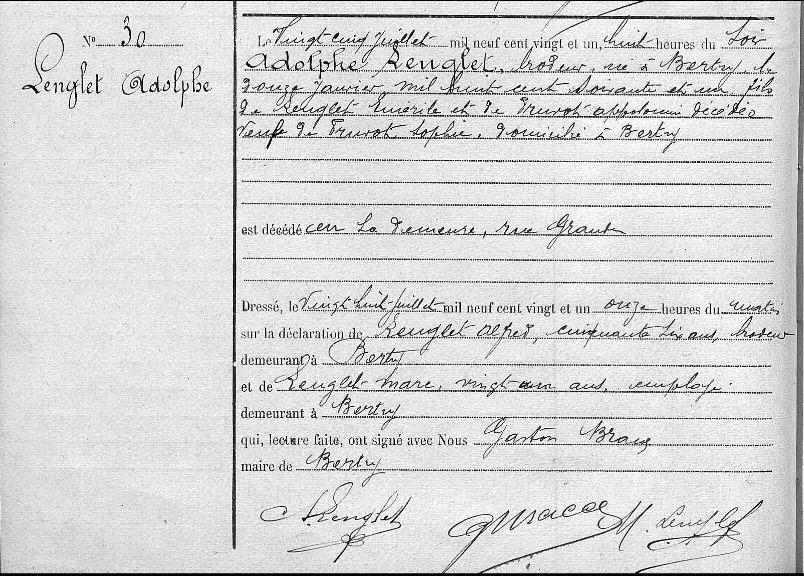 N° 30
Lenglet Adolphe
Le Vingt cinq juillet mil neuf cent vingt et un, huit heures du soir
Adolphe Lenglet, brodeur, né à Bertry le
douze janvier mil huit cent soixante et un fils
de Lenglet Emérile et de Pruvot appoloni décédés
Veuf de Pruvot Sophie, domicilié à Bertry
est décédé en sa demeure, rue
Dressé, le Vingt huit juillet mil neuf cent vingt et un onze heures du matin
sur la déclaration de Lenglet Alfred, cinquante six ans, brodeur
demeurant à Bertry
et de Lenglet Marc, vingt un ans, employé
demeurant à Bertry
qui, lecture faite, ont signé avec Nous Gaston
maire de Bertry
A. Lenglet M. Lenglet